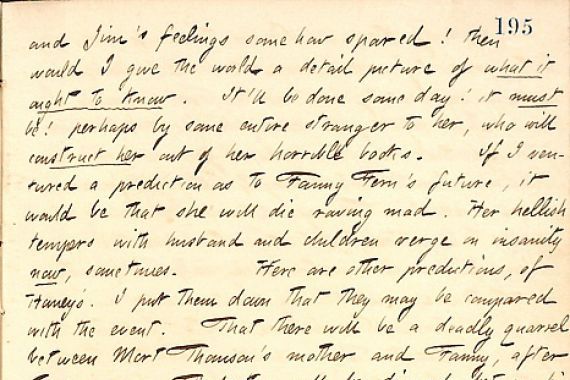 195
and Jim's feelings somehow spared! then
would I give the world a detail picture of what it
ought to know. It'll be done some day! it must
be! perhaps by some entire stranger to her, who will
construct her out of her horrible books. If I ven-
tured a prediction as to Fanny Fern's future, it
would be that she will die raving mad. Her hellish
tempers with husband and children verge on insanity
now, sometimes. Here are other predictions, of
Haney's. I put them down that they may be compared
with the event. That there will be a deadly quarrel
between Mort Thomson's mother and Fanny, after